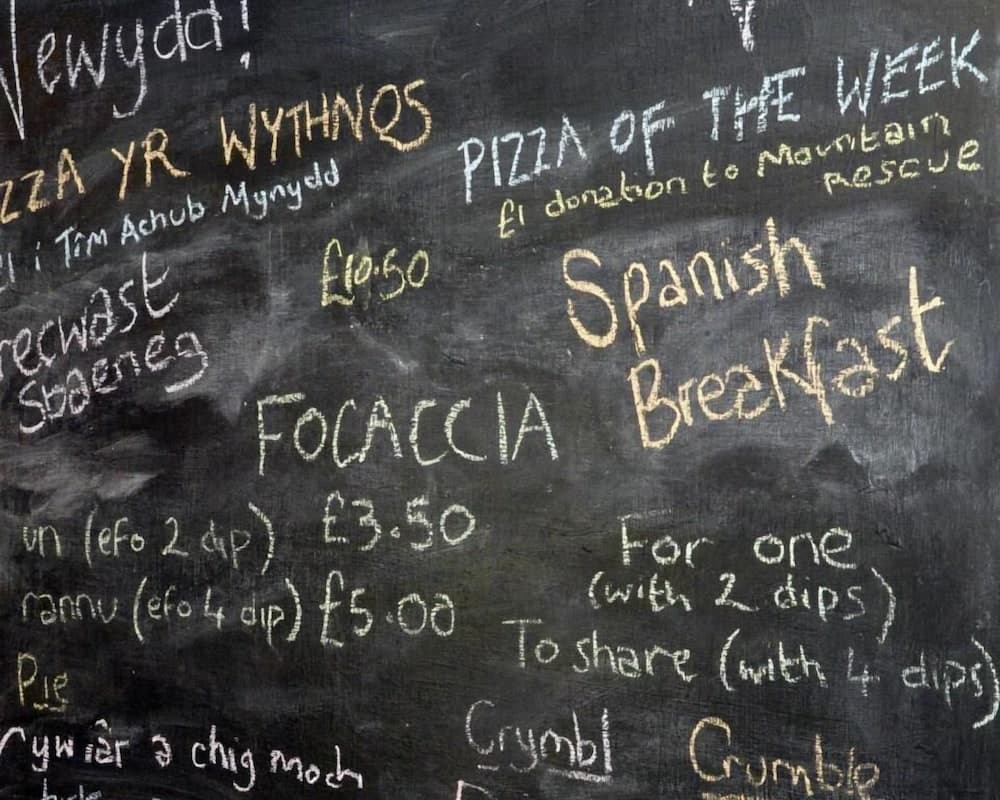 Newydd!
PIZZA YR WYTHNOS
£1 i Tim Achub Mynydd
PIZZA OF THE WEEK
£1 donation to Mountain
Rescue
£10.50
Brecwast
Sbaeneg
Spanish
Breakfast
FOCACCIA
un (efo 2 dip) £3.50
rannu (efo 4 dip) £5.00
For one
(with 2 dips)
To share (with 4 dips)
Pie
cyw iâr a chig moch
Crymbl
Crumble